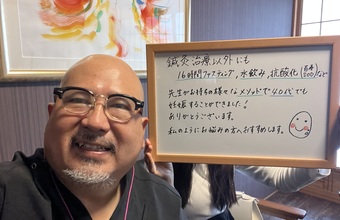 鍼灸治療以外にも
16時間ファスティング,水飲み,抗酸化()など
先生がお持ちの様々なメソッドで40代でも
妊娠することができました!
ありがとうございます。
私のようにお悩みの方へおすすめします。